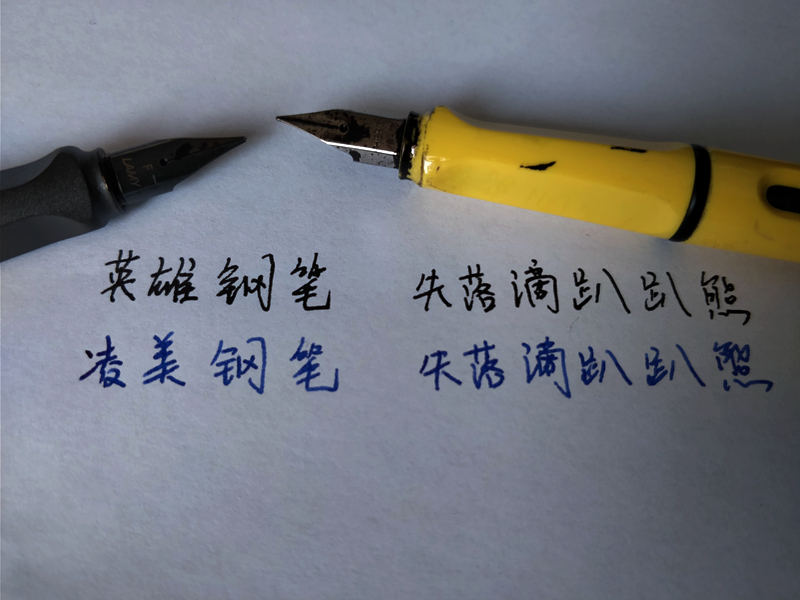 LAMY
F
英雄钢笔 失落滴趴趴熊
凌美钢笔 失落滴趴趴熊